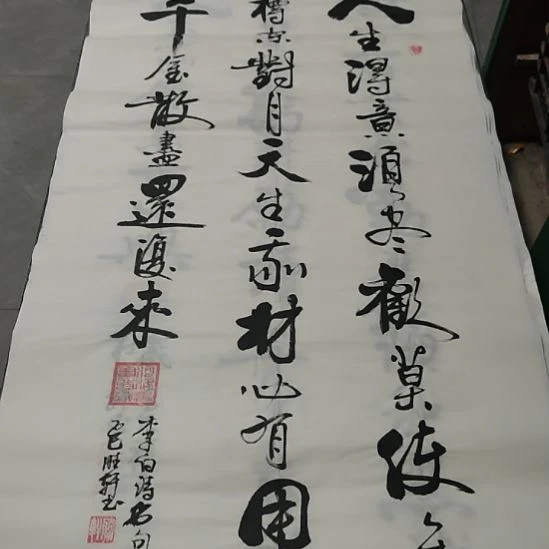 人生得意須尽歡莫使金
樽空對月天生我材必有用
千金散盡還復來
李白诗
乙巳